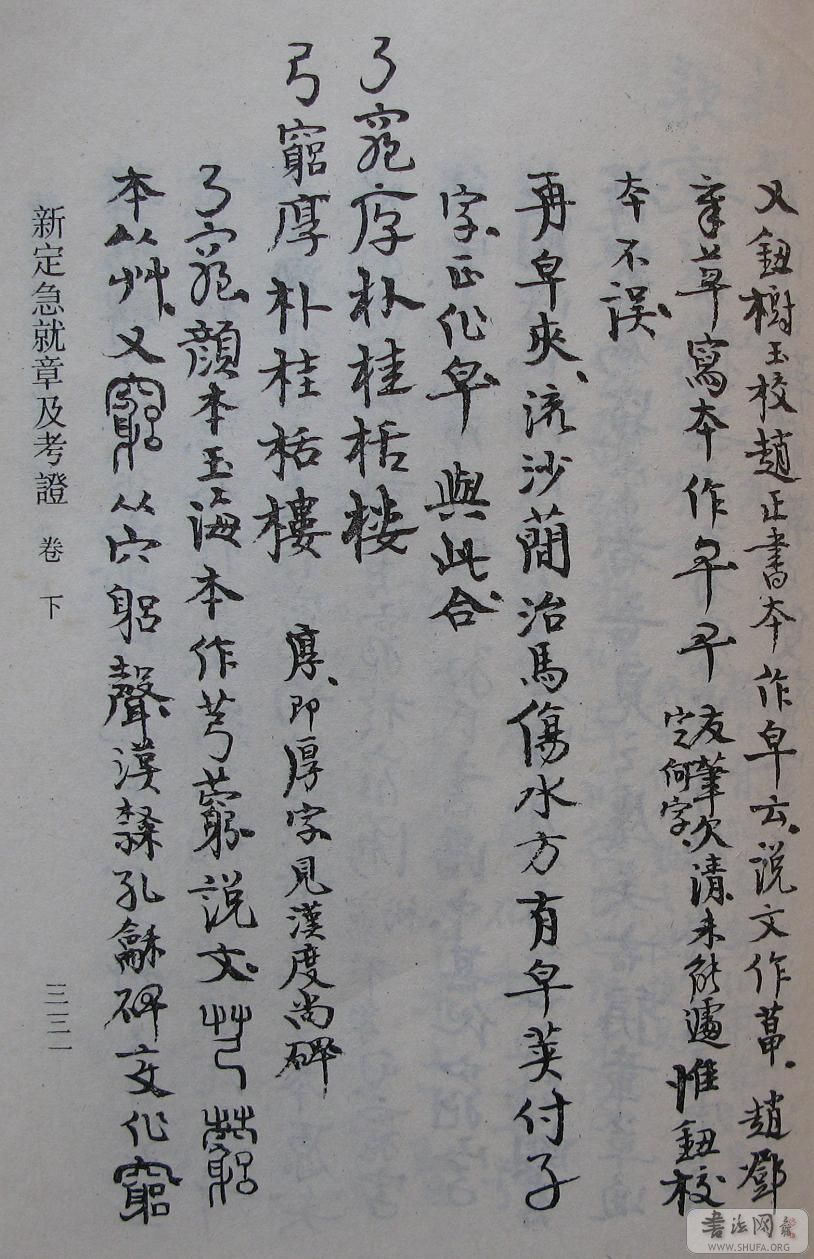 又鈕樹玉校趙正書本作皁云説文作草趙鄧
章草寫本作 友筆次清未能遽定何字惟鈕校
本不誤
再皁夾流沙蕳治馬傷水方有皁莢付子
字正作皁與此合
弓窮厚朴桂栝樓
弓窮厚朴桂栝樓 厚即厚字見漢度尚碑
弓窮顔本玉海本作芎藭説文
本从艸又竆从穴躳聲漢隸孔龢碑文作窮
新定急就章及考證 卷 下
三三一
書法网
WWW.SHUFA.ORG